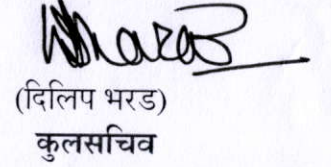 (दिलिप भरड)
कुलसचिव